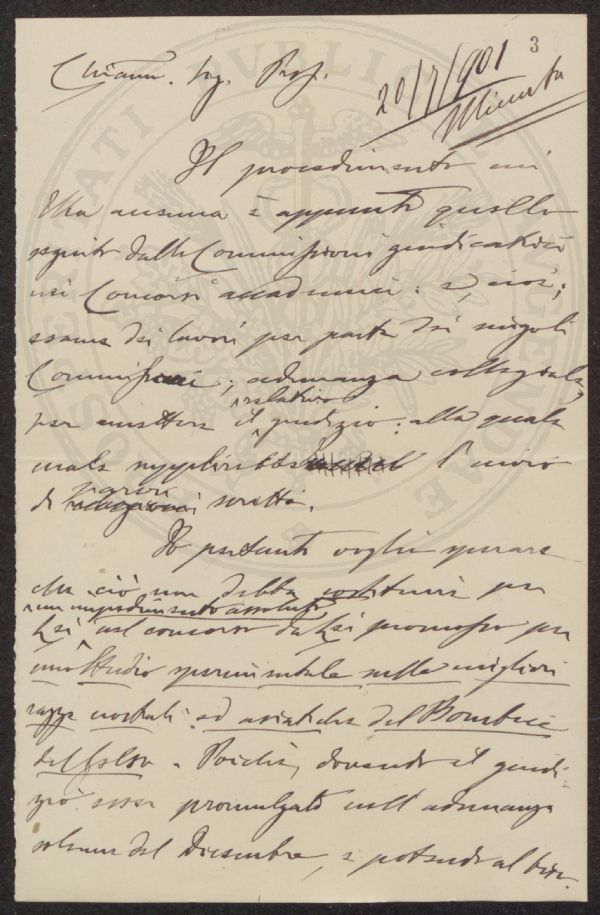 3
Chiarm. Sig. Prof.
20/7/901
Minuta
Il procedimento cui
Ella accenna è appunto quello
seguito dalle Commissioni giudicatrici
nei Concorsi accademici: e, cioè;
esame dei lavori per parte dei singoli
Commissari; adunanza collegiale,
per emettere il relativo giudizio: alla quale
male supplirebbe l'invio
di pareri scritti.
Io pertanto voglio sperare
che ciò non debba costituire per
Lei un impedimento assoluto nel concorso da Lei promosso per
uno Studio sperimentale sulle migliori
razze nostrali ed asiatiche del Bombice
del gelso. Poichè, dovendo il giudi-
zio esser promulgato nell'adunanza
solenne del Dicembre, e potendo al biso-